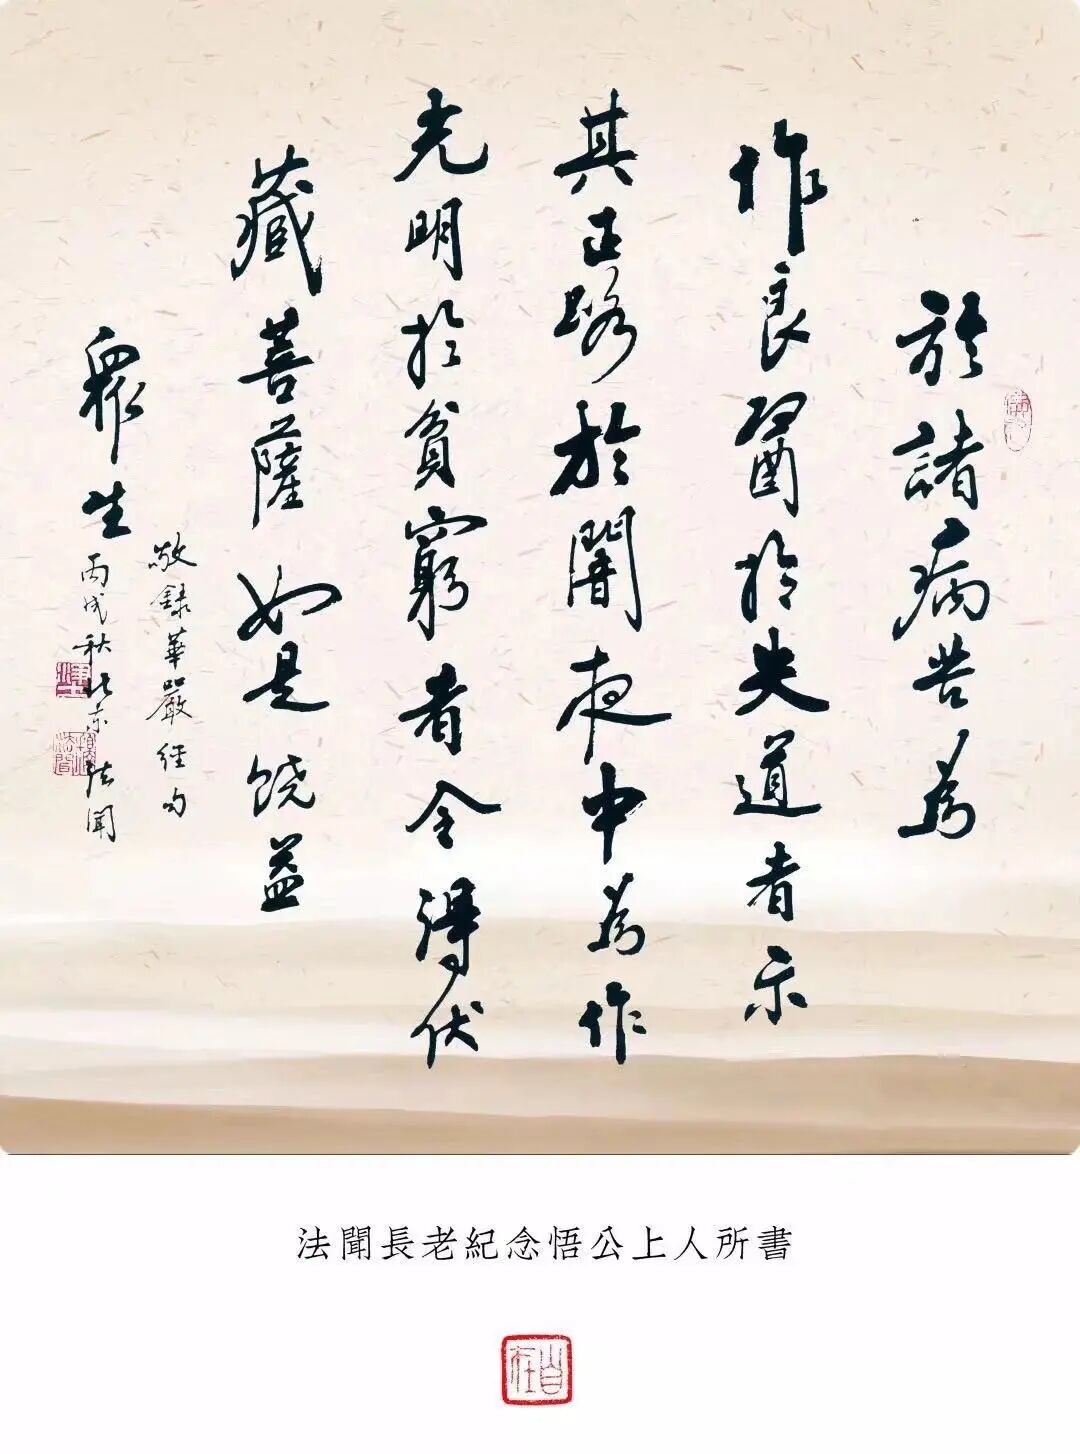 於諸病苦為
作良醫於失道者示
其正路於闇夜中為作
光明於貧窮者令得伏
藏菩薩如是饶益
眾生
敬録華嚴經句
丙戌秋北京法聞
法聞長老紀念悟公上人所書
自在